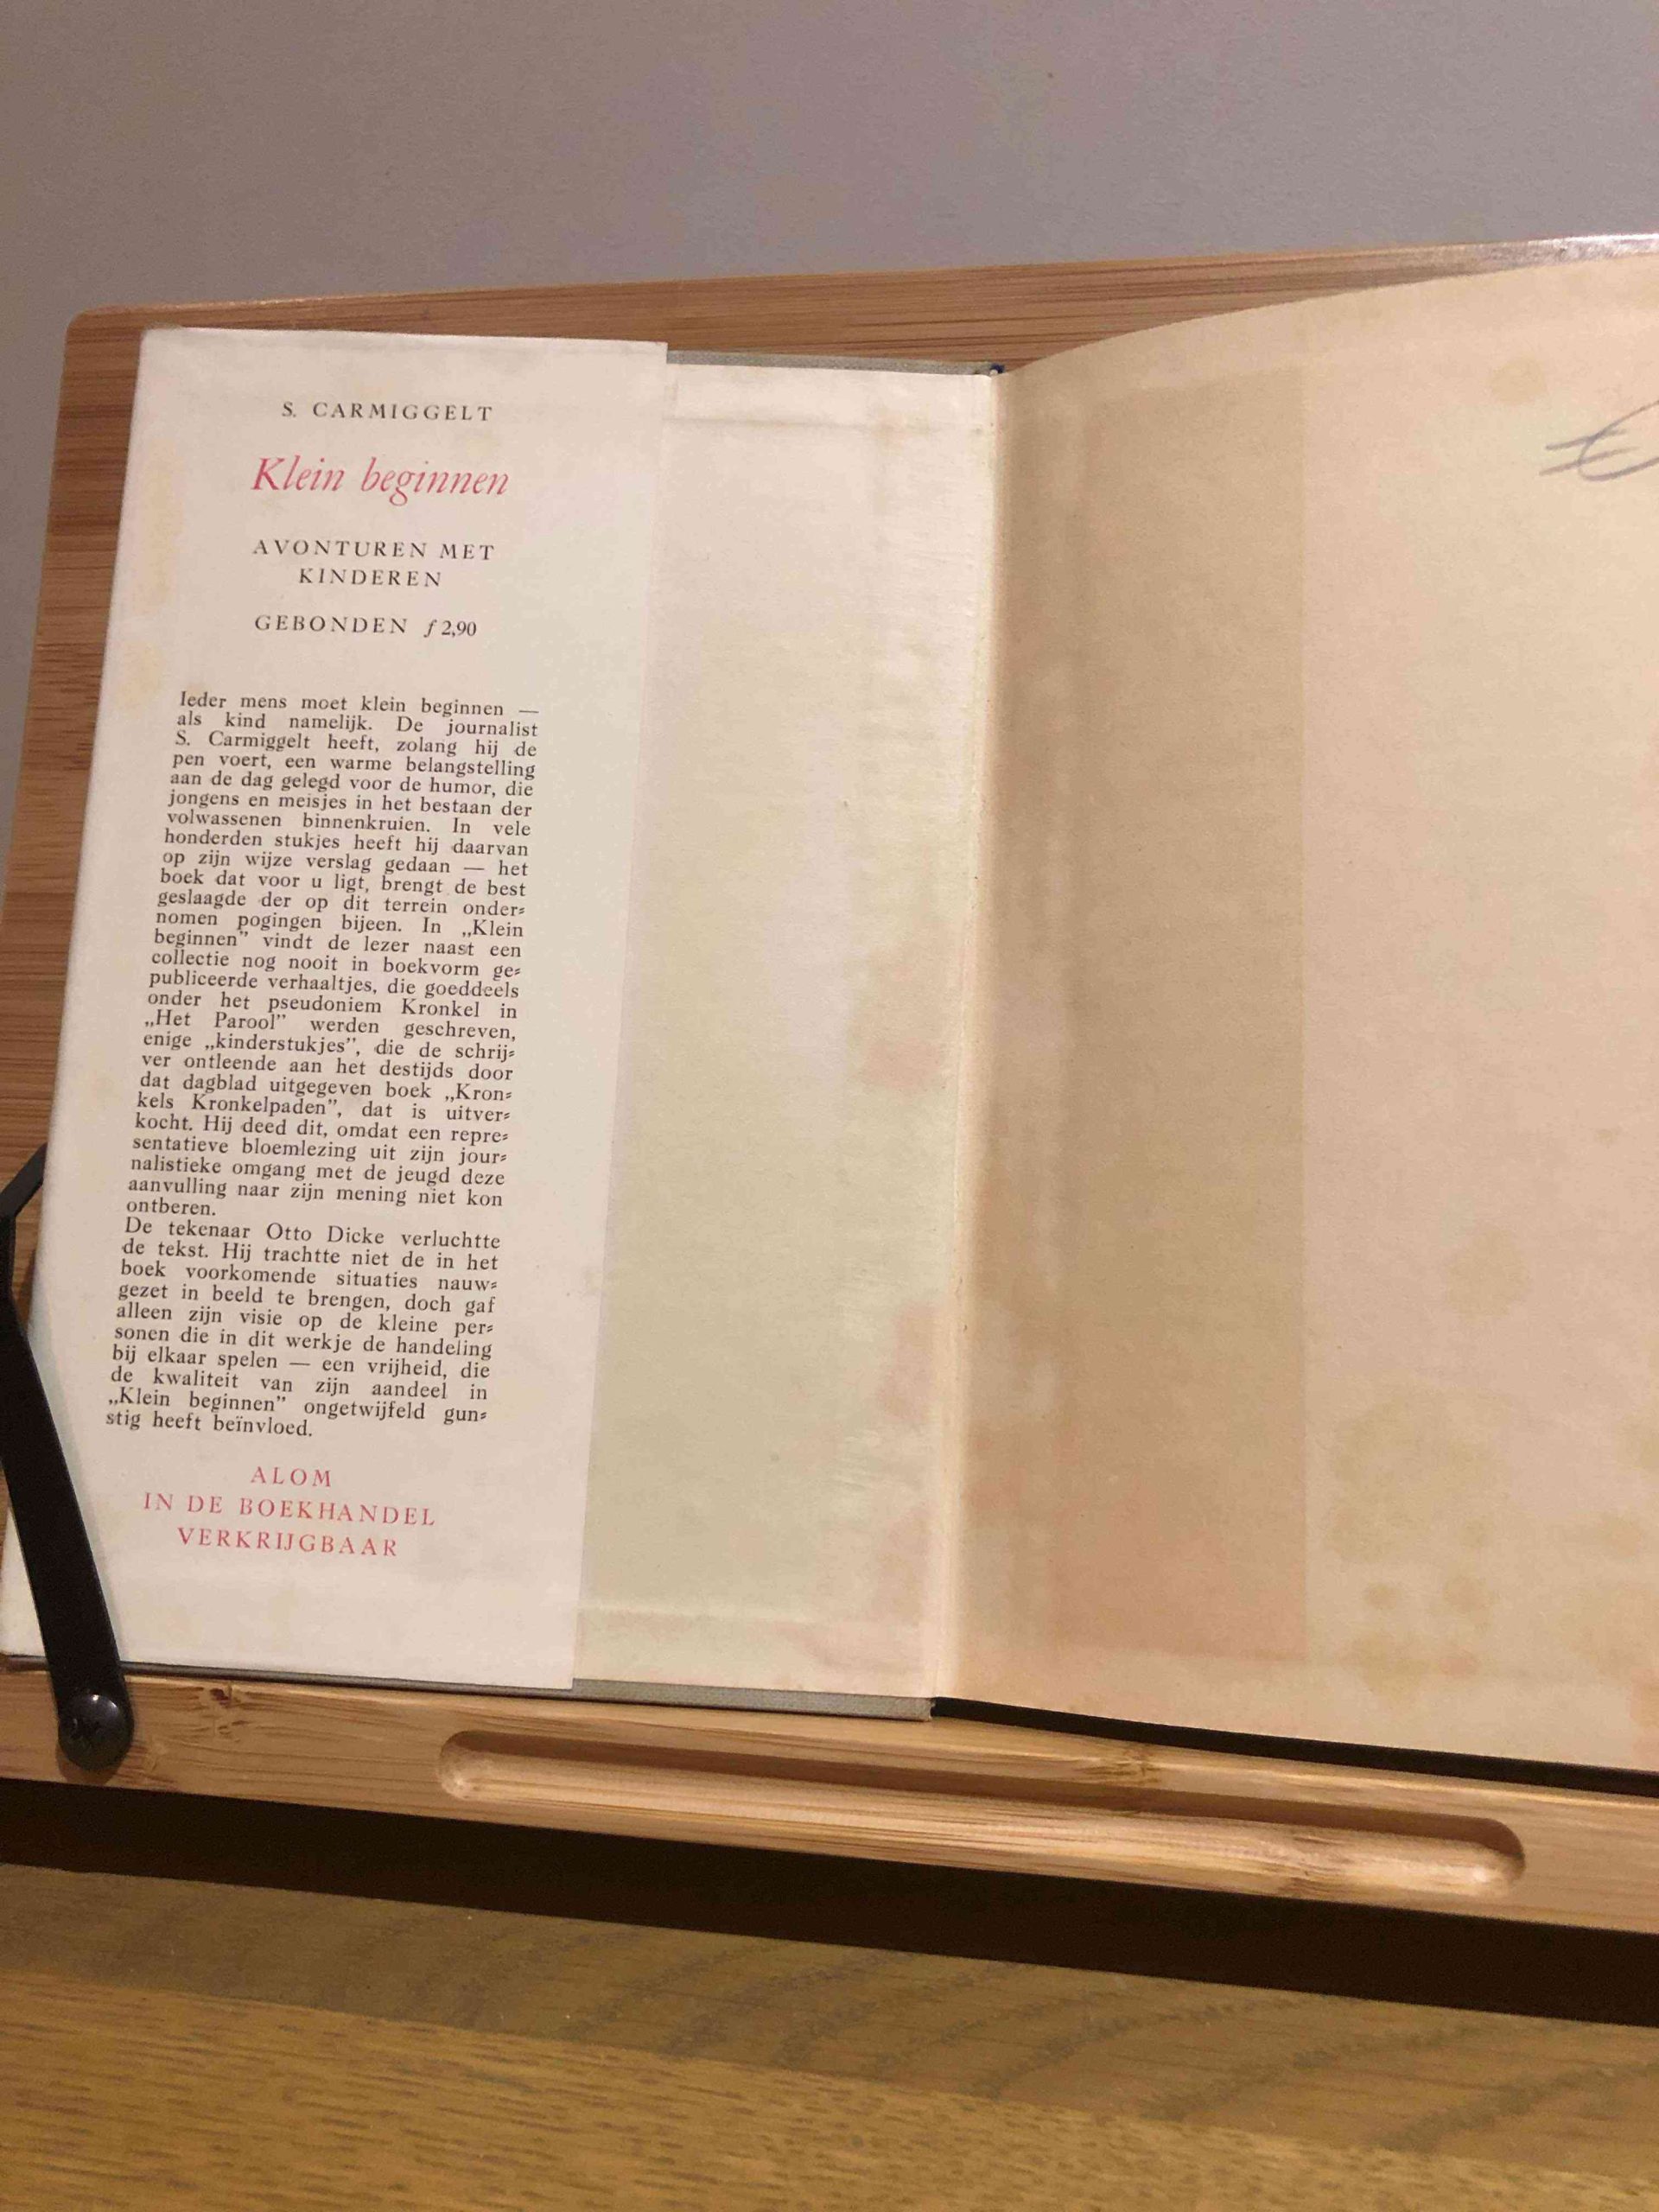 S. CARMIGGELT
Klein beginnen
AVONTUREN MET
KINDEREN
GEBONDEN f 2,90
Ieder mens moet klein beginnen —
als kind namelijk. De journalist
S. Carmiggelt heeft, zolang hij de
pen voert, een warme belangstelling
aan de dag gelegd voor de humor, die
jongens en meisjes in het bestaan der
volwassenen binnenkruien. In vele
honderden stukjes heeft hij daarvan
op zijn wijze verslag gedaan — het
boek dat voor u ligt, brengt de best
geslaagde der op dit terrein onder⸗
nomen pogingen bijeen. In „Klein
beginnen” vindt de lezer naast een
collectie nog nooit in boekvorm ge⸗
publiceerde verhaaltjes, die goeddeels
onder het pseudoniem Kronkel in
„Het Parool” werden geschreven,
enige „kinderstukjes”, die de schrij⸗
ver ontleende aan het destijds door
dat dagblad uitgegeven boek „Kron⸗
kels Kronkelpaden”, dat is uitver⸗
kocht. Hij deed dit, omdat een repre⸗
sentatieve bloemlezing uit zijn jour⸗
nalistieke omgang met de jeugd deze
aanvulling naar zijn mening niet kon
ontberen.
De tekenaar Otto Dicke verluchtte
de tekst. Hij trachtte niet de in het
boek voorkomende situaties nauw⸗
gezet in beeld te brengen, doch gaf
alleen zijn visie op de kleine per⸗
sonen die in dit werkje de handeling
bij elkaar spelen — een vrijheid, die
de kwaliteit van zijn aandeel in
„Klein beginnen” ongetwijfeld gun⸗
stig heeft beïnvloed.
ALOM
IN DE BOEKHANDEL
VERKRIJGBAAR